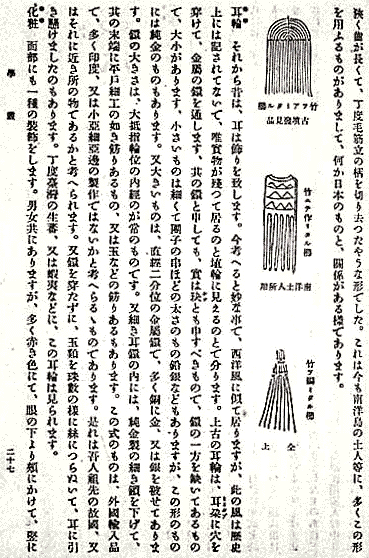 狹く齒が長くて、丁度毛筋立の柄を切り去つたやうな形でした。これは今も南洋島の土人等に、多くこの形
を用ふるものがありまして、何か日本のものと、關係がある樣であります。
竹ヲアミタル櫛
古墳發見品
竹ニテ作リタル櫛
南洋土人所用
竹ヲ編ミタル櫛
仝上
耳輪 それから昔は、耳に飾りを致します。今考へると妙な事で、西洋風に似て居りますが、此の風は歷史
上には記されてないで、唯實物が殘つて居るのと埴輪に見えるのとで分ります。上古の耳輪は、耳朶に穴を
穿けて、金屬の鐶を通します、其の鐶と申しても、實は玦とも申すべきもので、鐶の一方を缺いてあるもの
で、大小があります、小さいものは細くて團子の串ほどの太さのもの鉛銀などもありますが、この形のもの
には純金のものもあります。又大きいものは、直徑二分位の金屬鐶で、多く銅に金、又は銀を被せてありま
す。鐶の大きさは、大抵指輪位の內徑のが常のものです。又細き耳鐶の內には、純金製の細き鎖を下げて、
其の末端に平戶細工の如き飾りあるもの、又は玉などの飾りあるもあります。この式のものは、外國輸入品
で、多く印度、又は小亞細亞邊の製作ではないかと考へらるゝものであります。是れは吾人祖先の故國、又
はそれに近き所の物であるかと考へられます。又鐶を穿たずに、玉類を珠數の樣に絲につらぬいて、耳に引
き懸けましたのもあります。丁度臺灣の生蕃、又は蝦夷などに、この耳輪は見られます。
化粧 面部にも一種の裝飾をします。男女共にありますが、多く赤き色にて、眼の下より頰にかけて、竪に
學叢
二十七